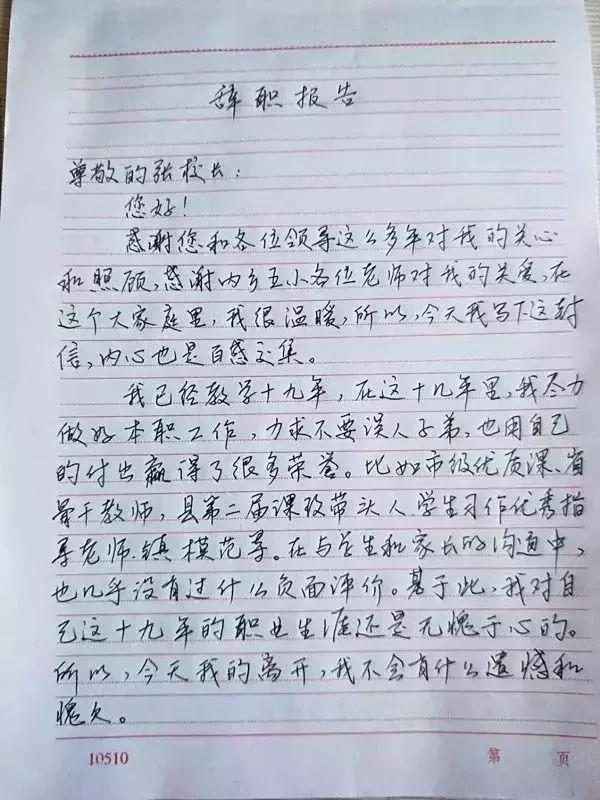 辞职报告
尊敬的张校长：
您好！
感谢您和各位领导这么多年对我的关心
和照顾，感谢内乡五小各位老师对我的关爱，在
这个大家庭里，我很温暖，所以，今天我写下这封
信，内心也是百感交集。
我已经教学十九年，在这十九年里，我尽力
做好本职工作，力求不要误人子弟，也用自己
的付出赢得了很多荣誉。比如市级优质课、省
骨干教师，县第二届课改带头人学生习作优秀指
导老师镇模范等。在与学生和家长的沟通中，
也几乎没有过什么负面评价。基于此，我对自
己这十九年的职业生涯还是无愧于心的。
所以，今天我的离开，我不会有什么遗憾和
愧欠。
10510 第 页